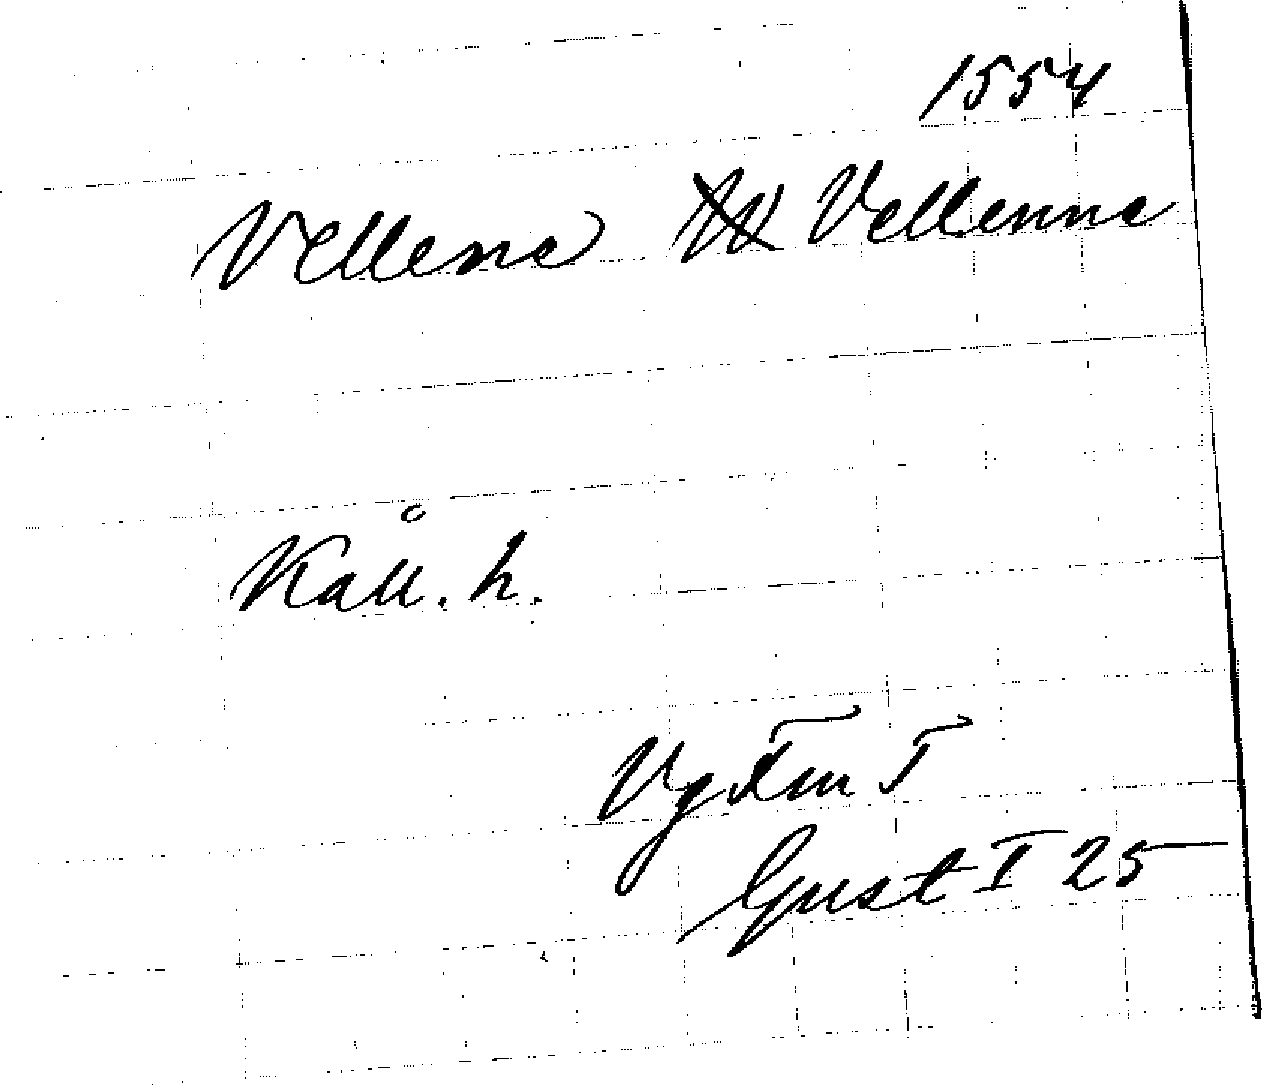 1554
Vellene Vellenne
Kåll. h.
Vg
Gust I 25